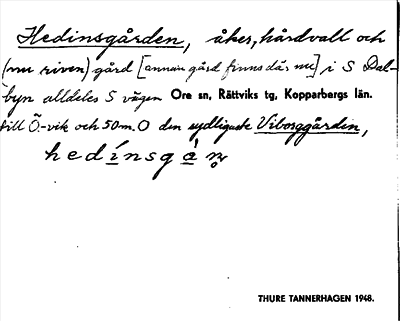 Hedinsgården, åker, hårdvall och
(nu riven) gård [annan gård finns där nu] i S Dal-
byn alldeles S vägen Ore sn, Rättviks tg, Kopparbergs län.
till Ö-vik och 50m. O den sydligaste Viborggården,
hedínsgá̊n
THURE TANNERHAGEN 1948.